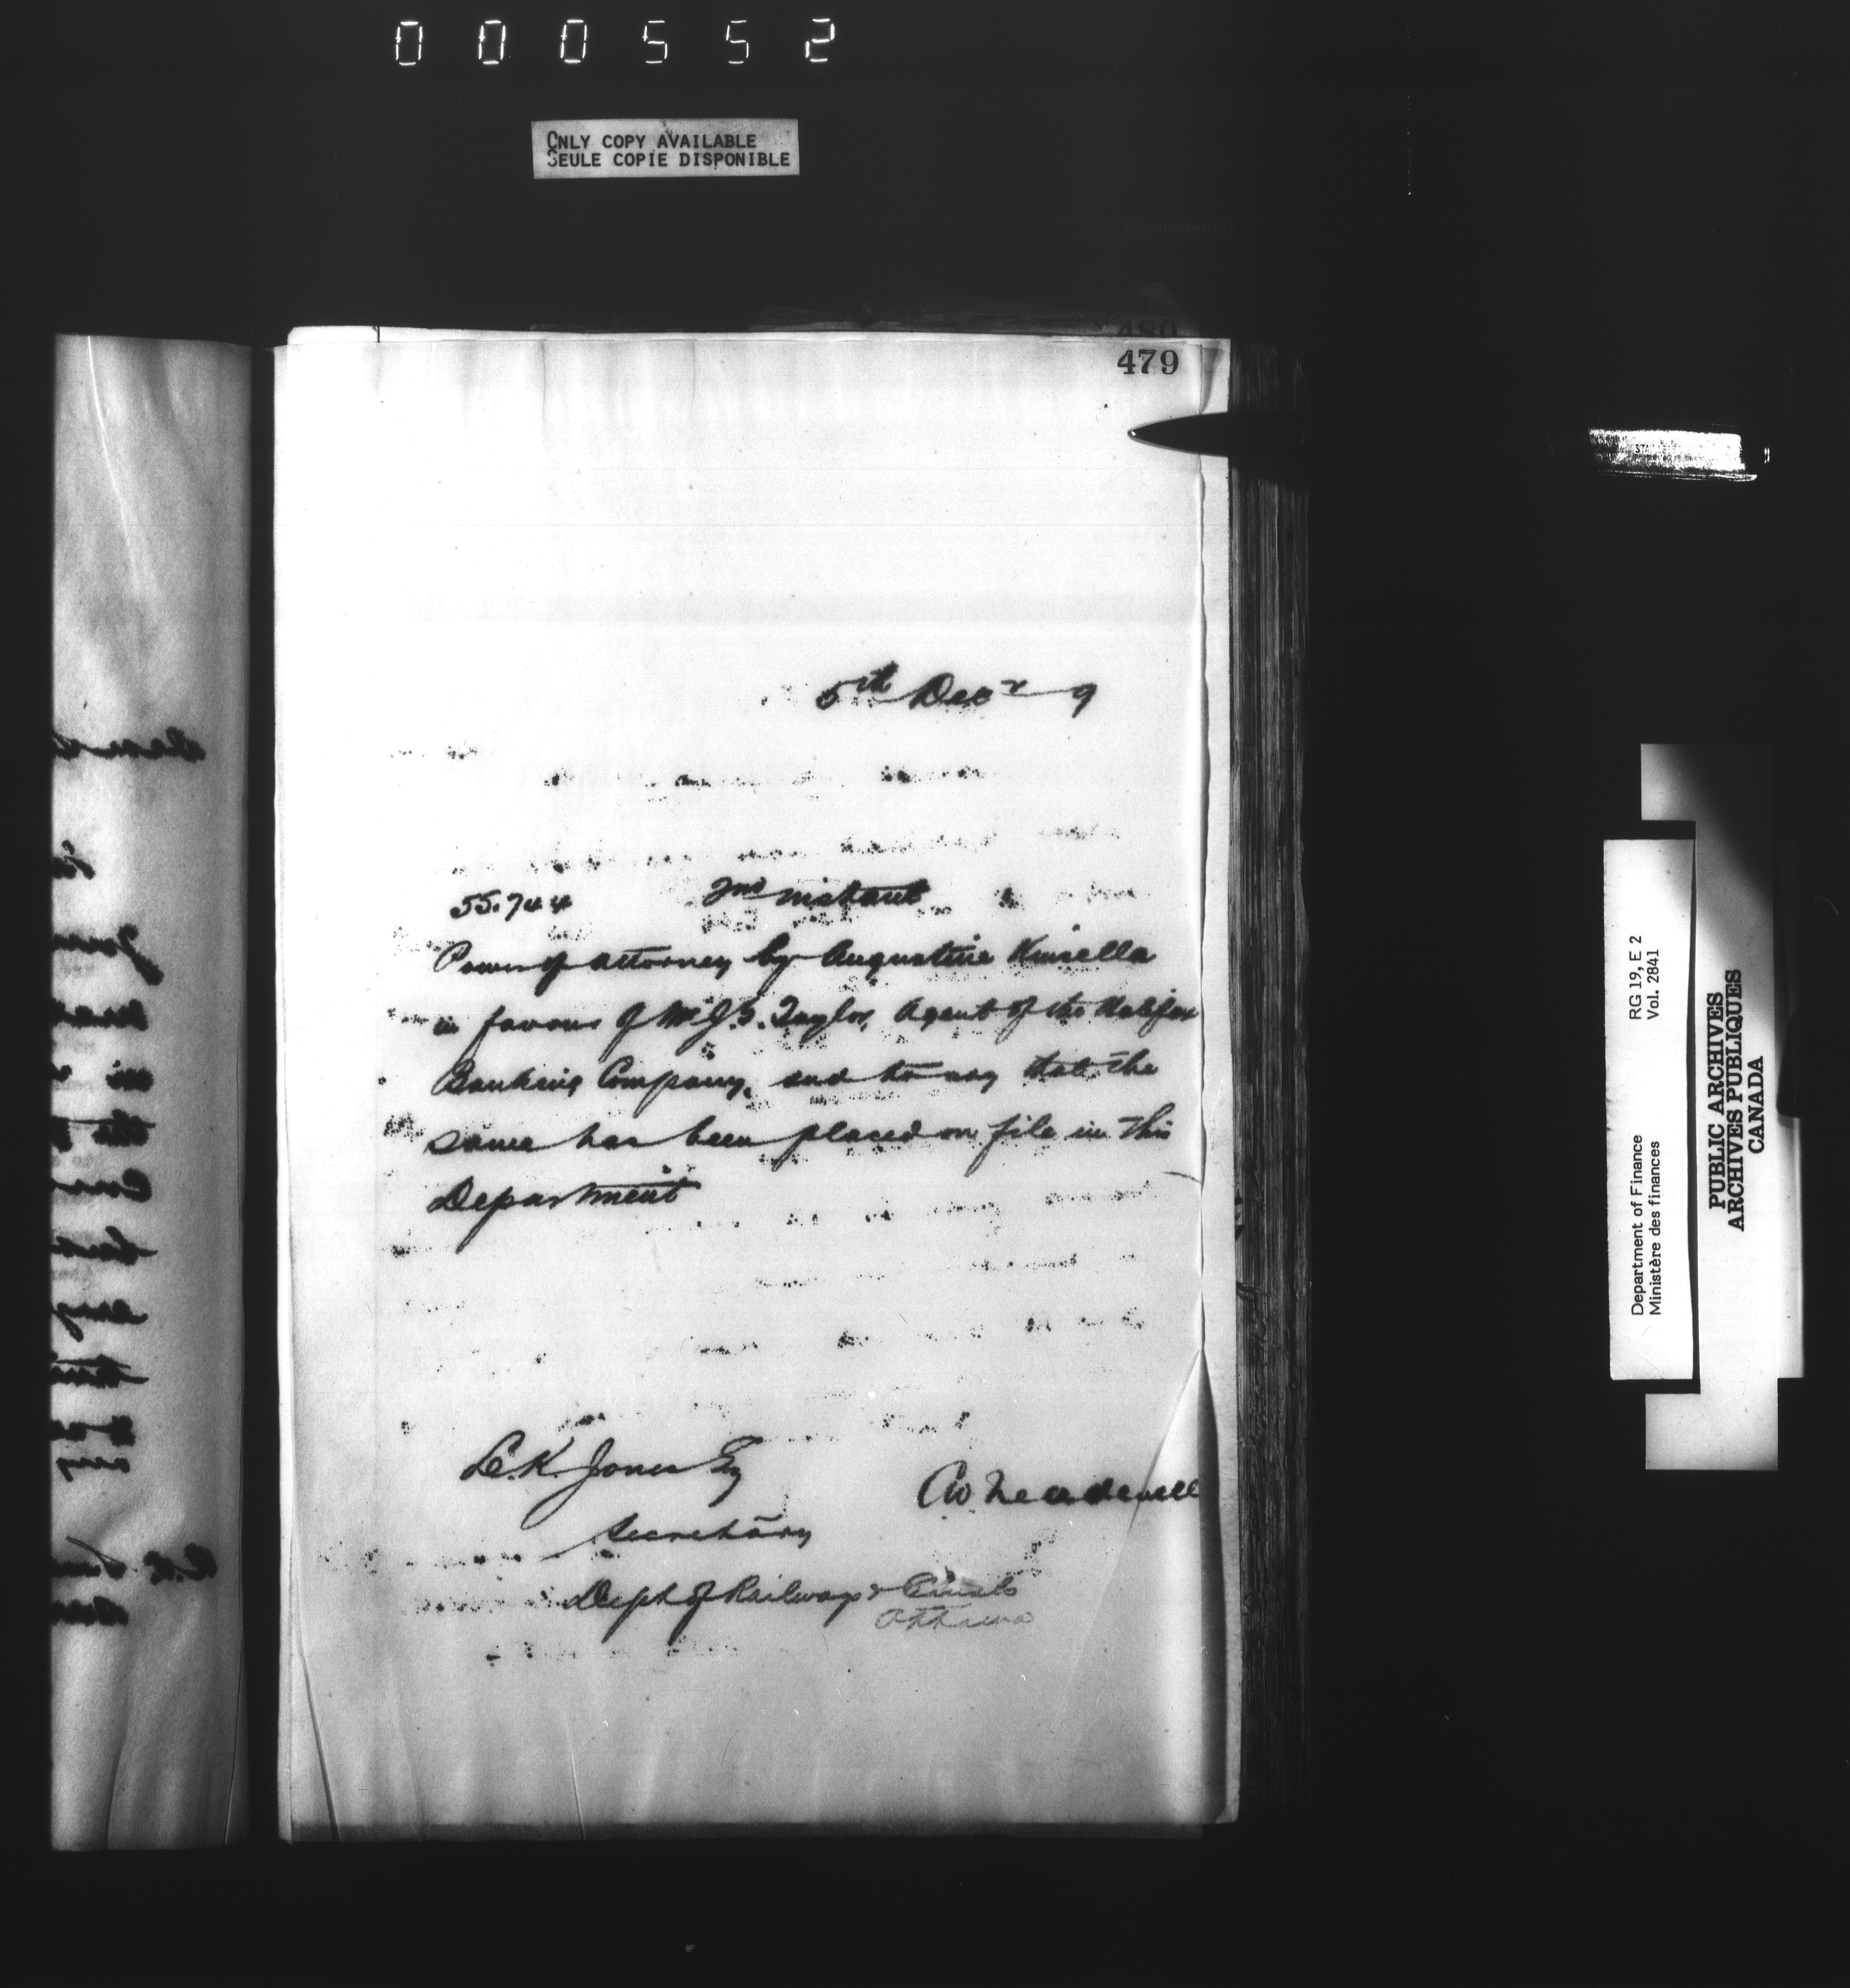 000552
ONLY COPY AVAILABLE
SEULE COPIE DISPONIBLE
480
479
5th Decr 9
55.744 2nd instant
Power of attorney by Augustine Kinsella
in favour of Mr J. Taylor, Agent of the Halifax
Banking Company, and to say that the
same has been placed on file in this
Department
L.K. Jones Esq
Secretary
Dept of Railways & Canals
Ottawa
Department of Finance RG 19, E 2
Ministère des finances Vol. 2841
PUBLIC ARCHIVES
ARCHIVES PUBLIQUES
CANADA